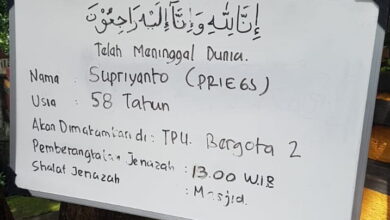 إِنَّا لِلّٰهِ وَإِنَّآ إِلَيْهِ رَاجِعُوْنَ
Telah Meninggal Dunia.
Nama : Supriyanto (PRIEGS)
Usia : 58 Tahun
Akan Dimakamkan di : TPU. Bergota 2
Pemberangkatan Jenazah : 13.00 WIB
Shalat Jenazah : Masjid.